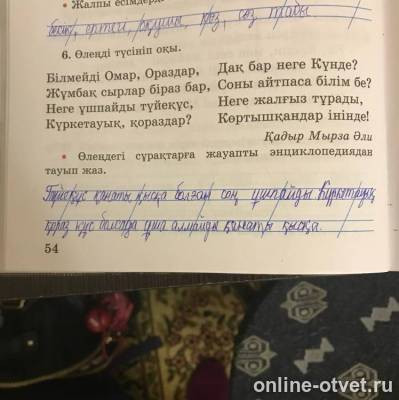 • Жалпы есімдерд
6. Өлеңді түсініп оқы.
Білмейді Омар, Ораздар,
Жұмбақ сырлар біраз бар,
Неге ұшпайды түйеқұс,
Күркетауық, қораздар?
Дақ бар неге Күнде?
Соны айтпаса білім бе?
Неге жалғыз тұрады,
Көртышқандар інінде!
Қадыр Мырза Әли
• Өлеңдегі сұрақтарға жауапты энциклопедиядан
тауып жаз.
Түйеқұс қанаты қысқа болған соң ұшпайды Күркетауық
қораз құс болсада ұша алмайды қанаты қысқа.
54
online-otvet.ru